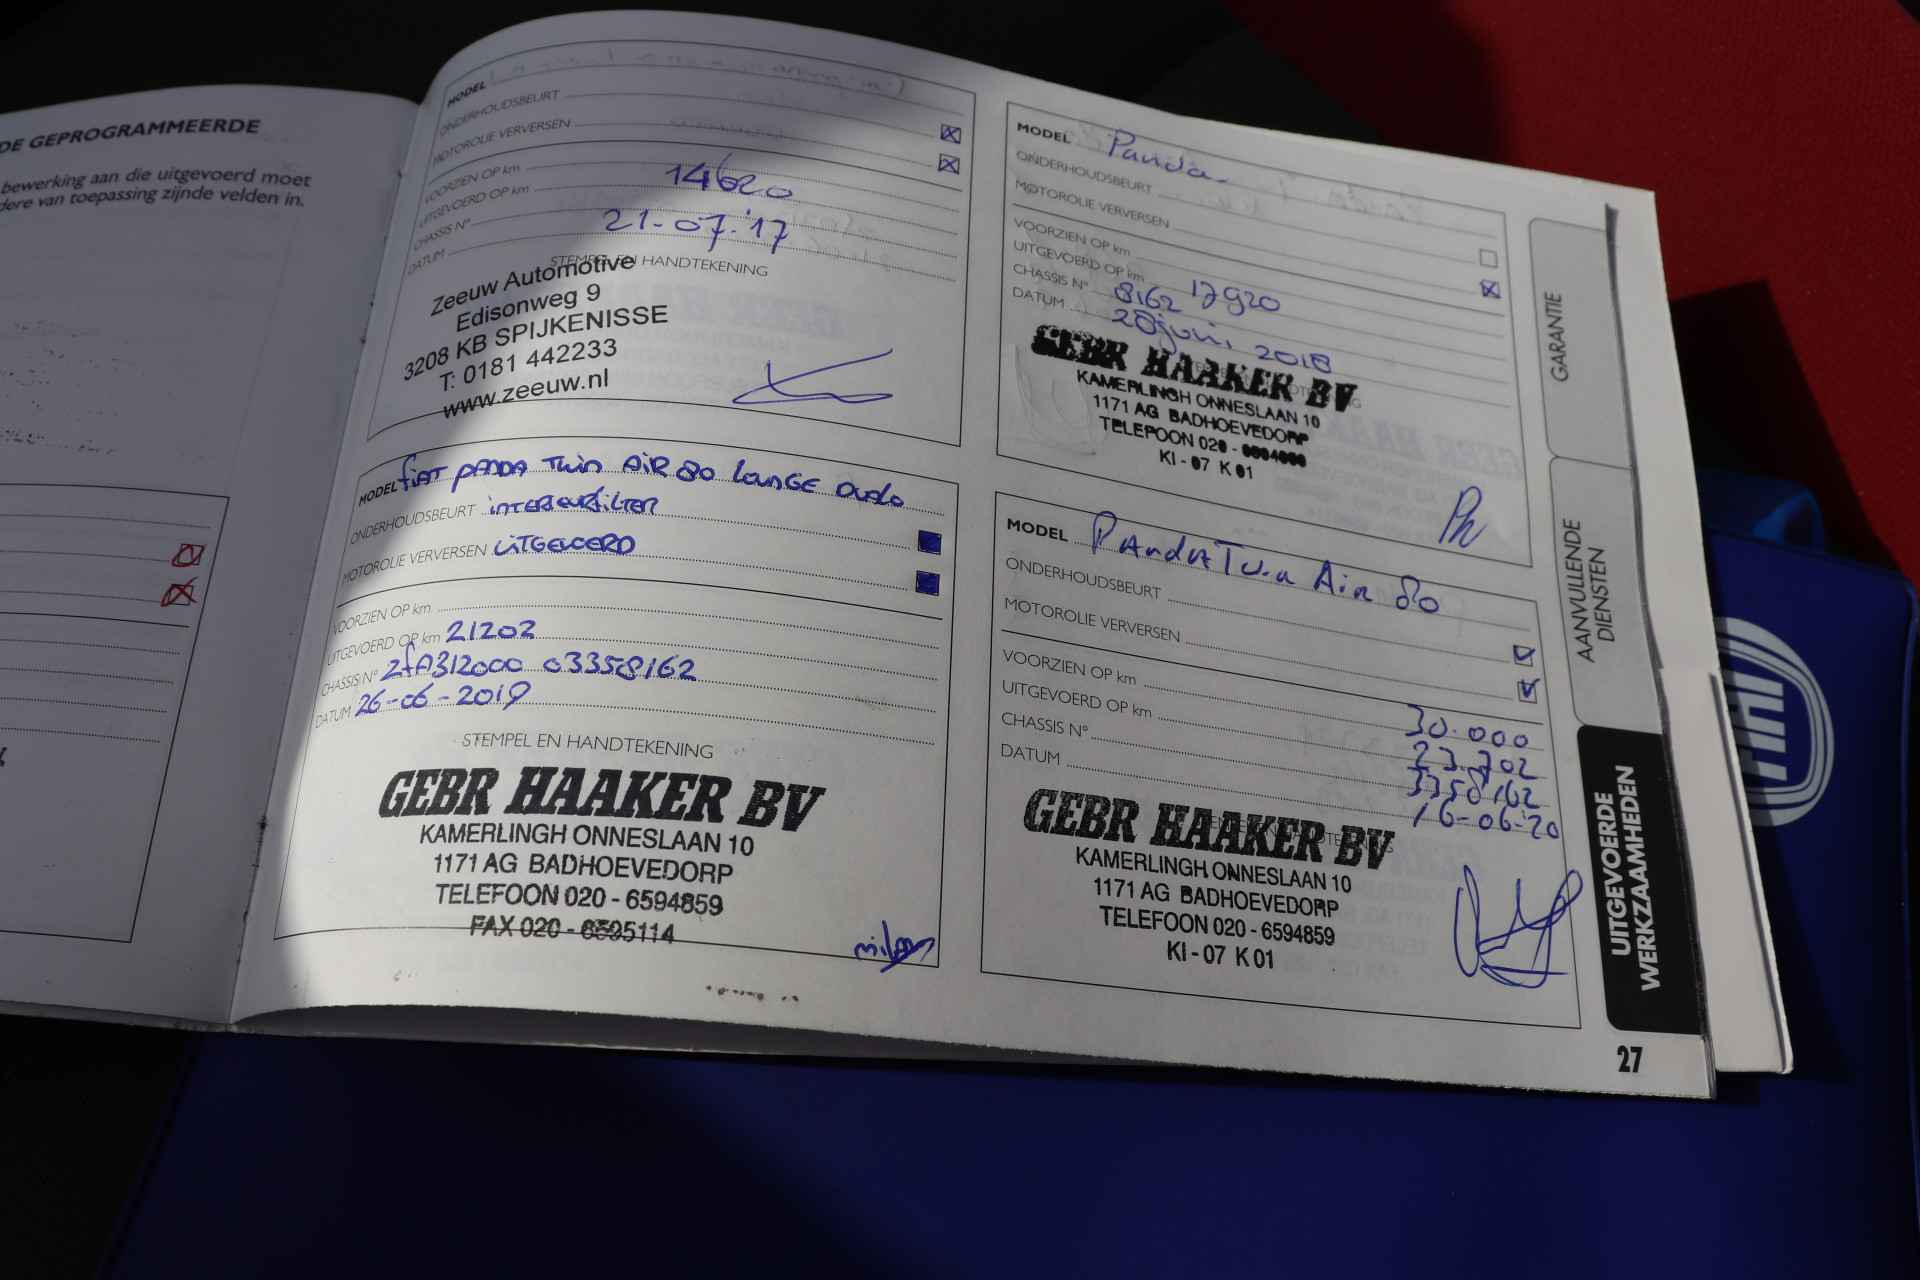 DE GEPROGRAMMEERDE
bewerking aan die uitgevoerd moet
dere van toepassing zijnde velden in.
MODEL
ONDERHOUDSBEURT
MOTOROLIE VERVERSEN
VOORZIEN OP km
UITGEVOERD OP km 14620
CHASSIS N°
DATUM 21-07-'17
STEMPEL EN HANDTEKENING
Zeeuw Automotive
Edisonweg 9
3208 KB SPIJKENISSE
T: 0181 442233
www.zeeuw.nl
MODEL Panda
ONDERHOUDSBEURT
MOTOROLIE VERVERSEN
VOORZIEN OP km
UITGEVOERD OP km 17920
CHASSIS N° 8162
DATUM 28 juni 2018
GEBR HAAKER BV
KAMERLINGH ONNESLAAN 10
1171 AG BADHOEVEDORP
TELEFOON 020 -
KI - 07 K 01
MODEL fiAT PANDA Twin AiR 80 LounGE
ONDERHOUDSBEURT intERiEuRfiLTER
MOTOROLIE VERVERSEN UiTGEVOERD
VOORZIEN OP km
UITGEVOERD OP km 21202
CHASSIS N° ZfA312000 03358162
DATUM 26-06-2019
STEMPEL EN HANDTEKENING
GEBR HAAKER BV
KAMERLINGH ONNESLAAN 10
1171 AG BADHOEVEDORP
TELEFOON 020 - 6594859
FAX 020 - 6595114
milan
MODEL PAndA Twin Air 80
ONDERHOUDSBEURT
MOTOROLIE VERVERSEN
VOORZIEN OP km 30.000
UITGEVOERD OP km 23.702
CHASSIS N° 3358162
DATUM 16-06-'20
GEBR HAAKER BV
KAMERLINGH ONNESLAAN 10
1171 AG BADHOEVEDORP
TELEFOON 020 - 6594859
KI - 07 K 01
GARANTIE
AANVULLENDE
DIENSTEN
UITGEVOERDE
WERKZAAMHEDEN
27
FIAT